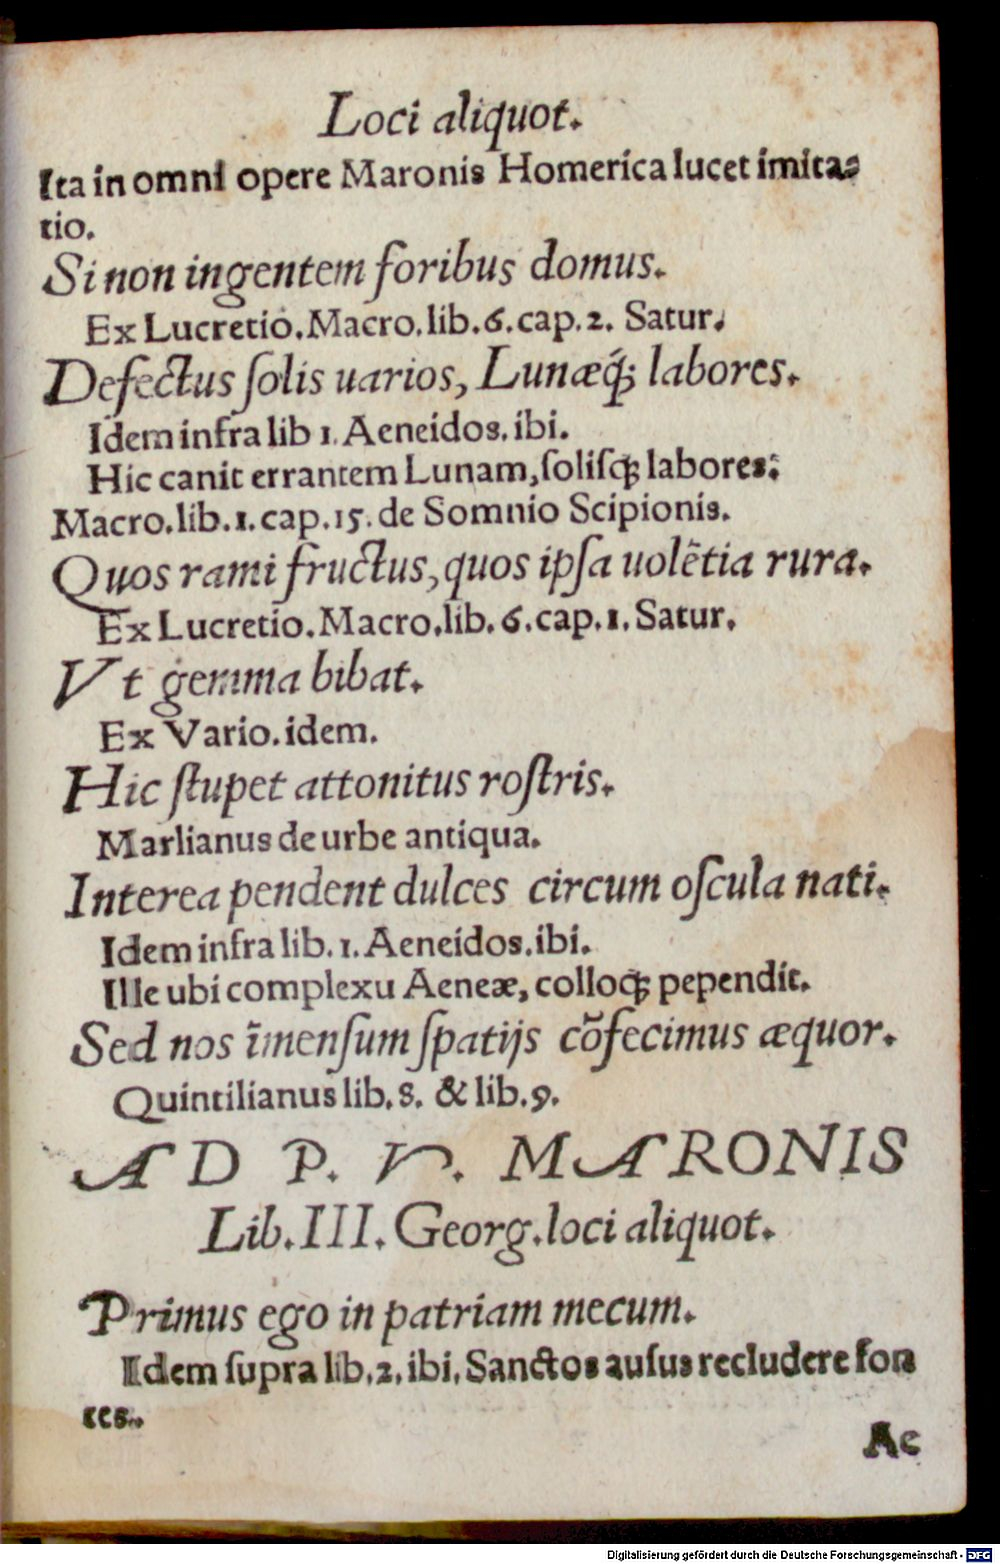 Loci aliquot.
Ita in omni opere Maronis Homerica lucet imita⸗
tio.
Si non ingentem foribus domus.
Ex Lucretio. Macro. lib. 6. cap. 2. Satur.
Defectus ſolis uarios, Lunæq́; labores.
Idem infra lib 1. Aeneidos. ibi.
Hic canit errantem Lunam, ſoliſq; labores:
Macro. lib. 1. cap. 15. de Somnio Scipionis.
Quos rami fructus, quos ipſa uolẽtia rura.
Ex Lucretio. Macro. lib. 6. cap. 1. Satur.
Vt gemma bibat.
Ex Vario. idem.
Hic ſtupet attonitus roſtris.
Marlianus de urbe antiqua.
Interea pendent dulces circum oſcula nati.
Idem infra lib. 1. Aeneidos. ibi.
Ille ubi complexu Aeneæ, colloq; pependit.
Sed nos ĩmenſum ſpatijs cõfecimus æquor.
Quintilianus lib. 8. & lib. 9.
AD P. V. MARONIS
Lib. III. Georg. loci aliquot.
Primus ego in patriam mecum.
Idem ſupra lib. 2. ibi, Sanctos auſus recludere fon⸗
tes.
Ac
Digitalisierung gefördert durch die Deutsche Forschungsgemeinschaft - DFG